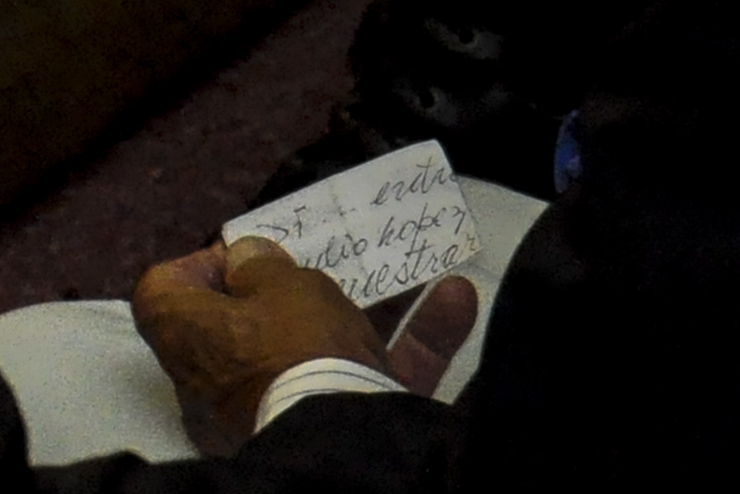 Si... entre
udio Lopez
uestrar